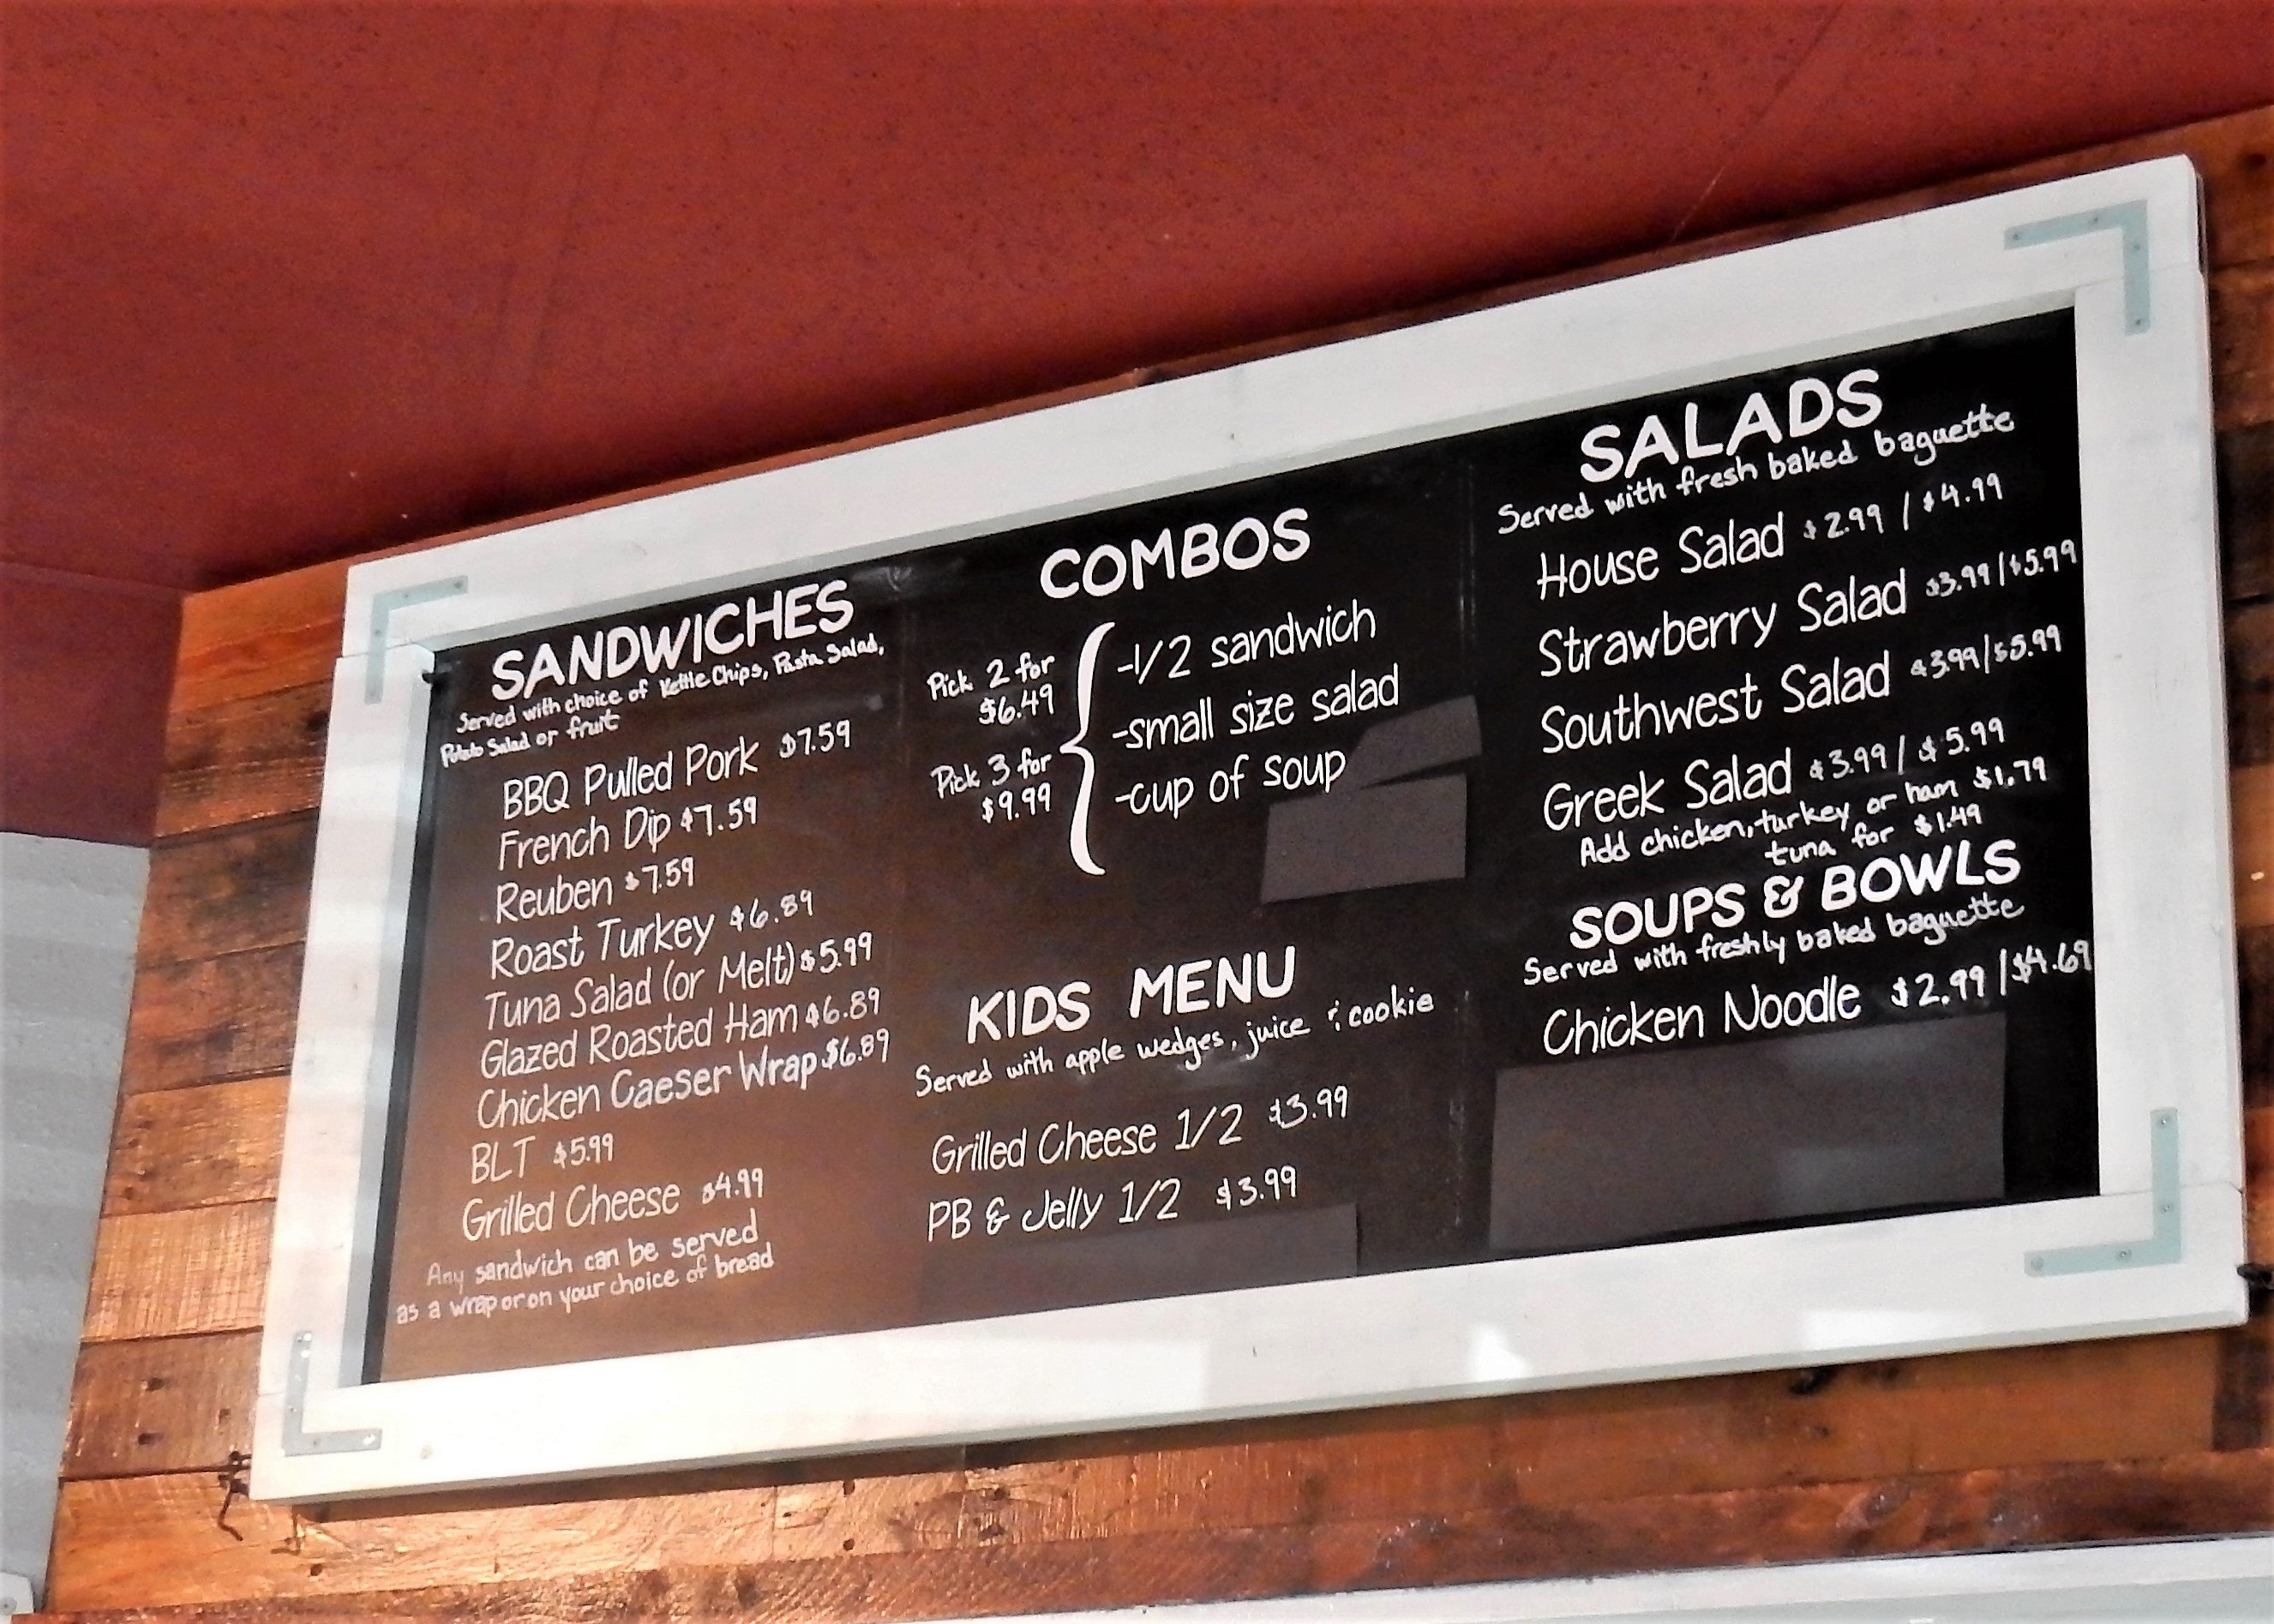 SANDWICHES
Served with choice of Kettle Chips, Pasta Salad,
Potato Salad or fruit
BBQ Pulled Pork $7.59
French Dip $7.59
Reuben $7.59
Roast Turkey $6.89
Tuna Salad (or Melt) $5.99
Glazed Roasted Ham $6.89
Chicken Caeser Wrap $6.89
BLT $5.99
Grilled Cheese $4.99
Any sandwich can be served
as a wrap or on your choice of bread
COMBOS
Pick 2 for
$6.49
Pick 3 for
$9.99
-1/2 sandwich
-small size salad
-cup of soup
KIDS MENU
Served with apple wedges, juice & cookie
Grilled Cheese 1/2 $3.99
PB & Jelly 1/2 $3.99
SALADS
Served with fresh baked baguette
House Salad $2.99 / $4.99
Strawberry Salad $3.99/$5.99
Southwest Salad $3.99/$5.99
Greek Salad $3.99 / $5.99
Add chicken, turkey or ham $1.79
tuna for $1.49
SOUPS & BOWLS
Served with freshly baked baguette
Chicken Noodle $2.99 /$4.69